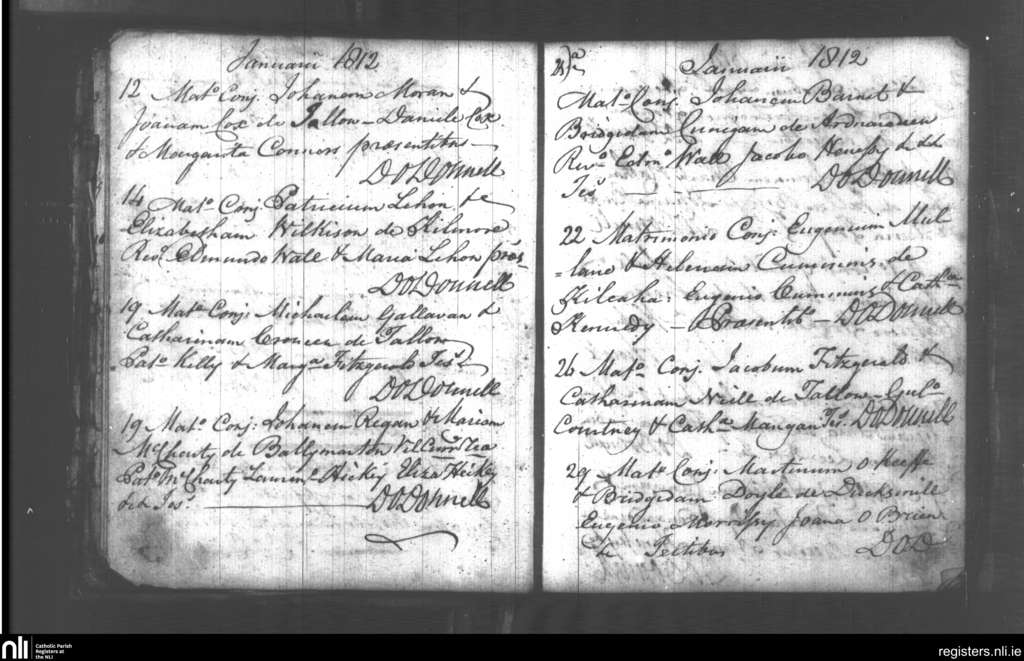 Januarii 1812
12 Mato. Conj. Johanem Moran &
Joanam Cox de Tallow – Daniele Cox
& Margarita Connors præsentibus –
DODonnell
14 Mato. Conj. Patricium Lehon &
Elizabetham Wilkison de Kilmore
Revo. Edmundo Wall & Maria Lehon
DODonnell
19 Mato. Conj: Michaelem Gallavan &
Catharinam de Tallow
Pato. Killy & Marga. Fitzgerald Tess
DODonnell
19 Mato. Conj: Johanem Regan & Mariam
McCharty de
Pato. McCharty Hickey Eliza Hickey
Tess. DODonnell
Januarii 1812
Mato. Conj. Johanem Barnet &
Bridgidam de
Revo. Wall Jacobo
Tess DODonnell
22 Matrimonio Conj: Eugenium Mul
=lane & Helenam Cummins de
Eugenio Cummins & Catha
Kennedy – Præsentibs – DODonnell
26 Mato. Conj. Jacobum Fitzgerald &
Catharinam Neill de Tallow – Gulo.
Courtney & Catha. Mangan Tess. DODonnell
29 Mato. Conj: Martinum O Keeffe
& Bridgidam Doyle de
Eugenio Morrissy Joana O Brien
Testibus DOD
nli
Catholic Parish
Registers at
the NLI
registers.nli.ie